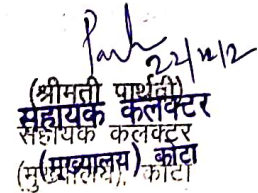 22/12/2
(श्रीमती पार्थवी)
सहायक कलक्टर
सहायक कलक्टर
(मुख्यालय) कोटा
(मुख्यालय), कोटा